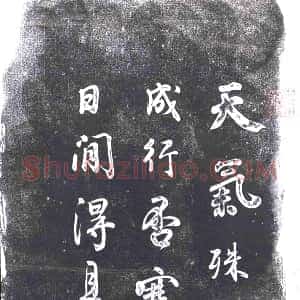 天氣殊
成行否寒
日間得且
Shufaziliao.com